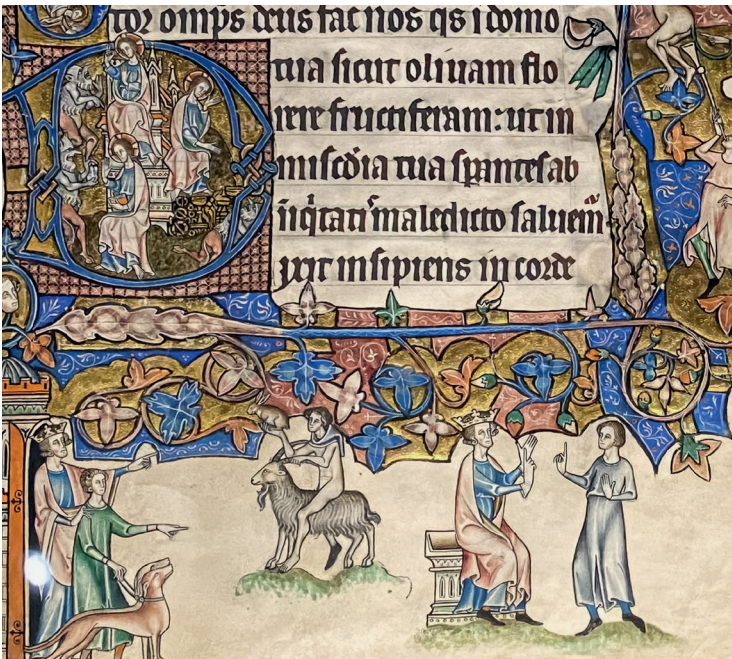 tor omp̅s deus fac nos q̅s i domo
tua sicut oliuam flo
rere fructiferam: ut in
mis̅c̅dia tua sp̅antes ab
iniq̅itati maledicto saluem̅
ixit insipiens in corde